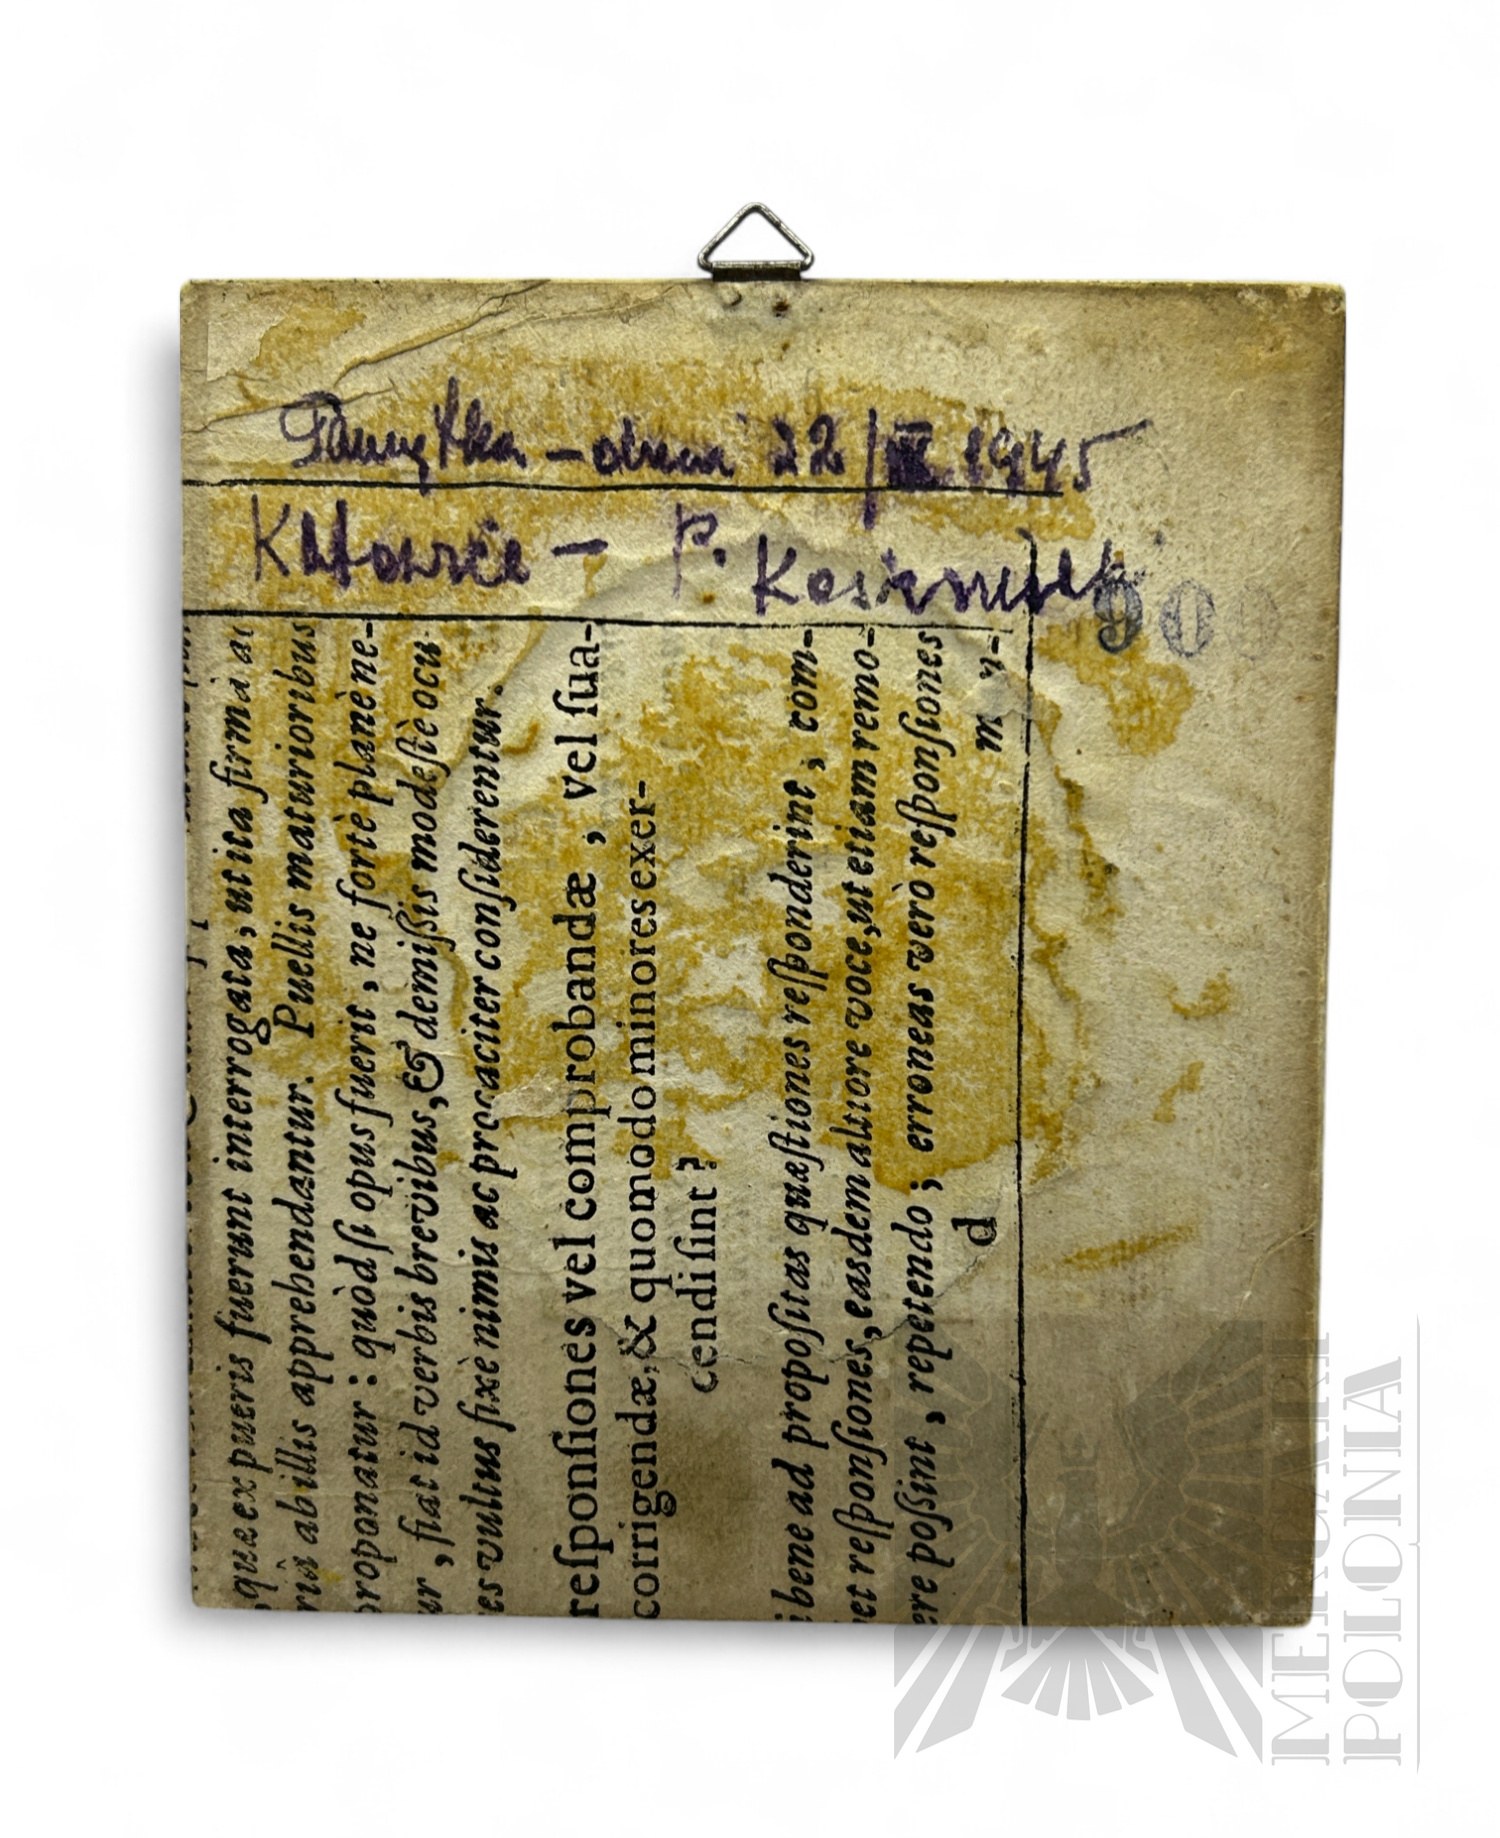 Pamiątka – dnia 22/III 1945
Katowice – P.
900
quæ ex pueris fuerunt interrogata, ut ita firma
ab illis apprehendantur. Puellis maturioribus
proponatur : quòd si opus fuerit , ne fortè planè ne-
, fiat id verbis brevibus, & demiſſis modeſtè ocu
vultus fixè nimis ac procaciter conſiderentur.
reſponſiones vel comprobandæ , vel ſua-
corrigendæ, & quomodo minores exer-
cendi ſint ?
bene ad propoſitas quæſtiones reſponderint , com-
reſponſiones, easdem altiore voce, ut etiam remo-
poſſint , repetendo ; erroneas verò reſponſiones
d
MERCARI
POLONIA